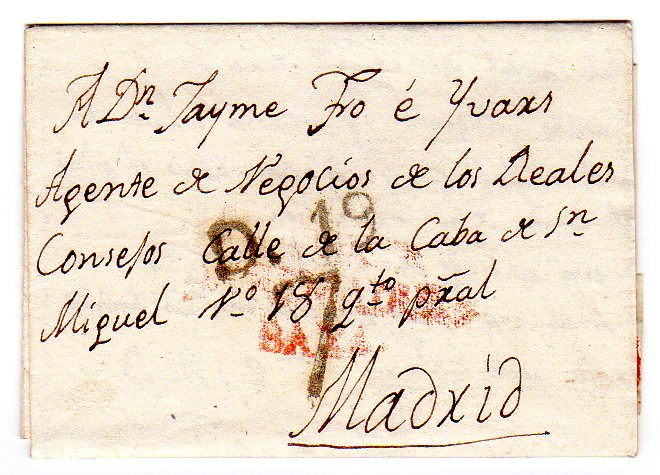 A Dn. Jayme Fro é Yvars
Agente de Negocios de los Reales
Consejos Calle de la Caba de Sn
Miguel No. 18 qto pral
Madrid
D. 19
7
BA